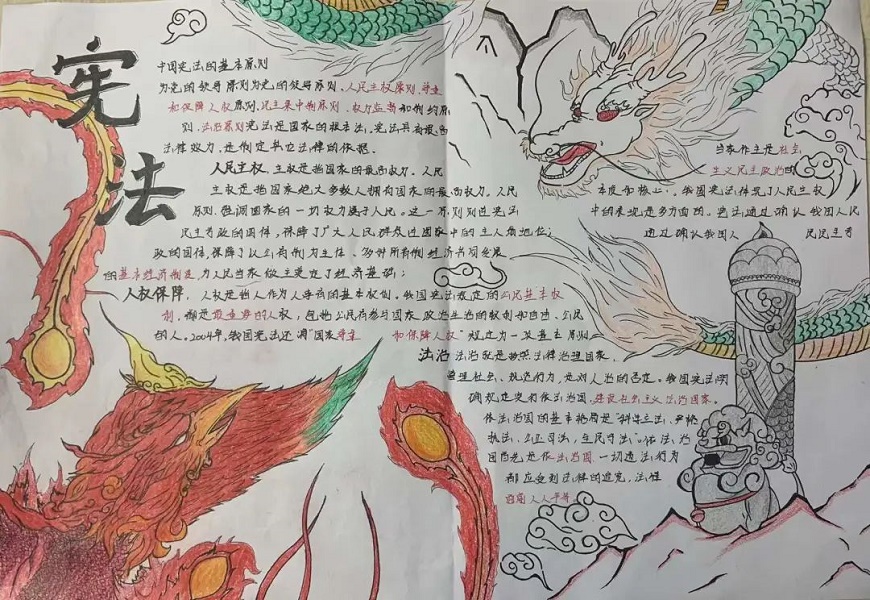 宪法
中国宪法的基本原则
为党的领导原则为党的领导原则、人民主权原则、尊重
和保障人权原则、民主集中制原则、权力监督和制约原
则、法治原则宪法是国家的根本法，宪法具有最高
法律效力，是制定其它法律的依据。
人民主权，主权是指国家的最高权力。人民
主权是指国家绝大多数人拥有国家的最高权力。人民
原则，强调国家的一切权力属于人民。这一原则决定宪法
民主专政的国体，保障了广大人民群众在国家中的主人翁地位；
政的国体，保障了以公有制为主体、多种所有制经济共同发展
的基本经济制度，为人民当家做主奠定了经济基础；
人权保障，人权是指人作为人享有的基本权利。我国宪法规定的公民基本权
利，都是最重要的人权，包括公民有参与国家政治生活的权利和自由、公民
的人，2004年，我国宪法还将"国家尊重和保障人权"规定为一项基本原则
法治 法治就是按照法律治理国家、
管理社会、规范行为，是对人治的否定。我国宪法明
确规定实行依法治国，建设社会主义法治国家。
依法治国的基本格局是"科学立法、严格
执法、公正司法、全民守法"。依法治
国首先是依法治国，一切违法行为
都应受到法律的追究，法律
面前人人平等
当家作主是社会
主义民主政治的
本质和核心。我国宪法体现了人民主权
中的表现是多方面的。宪法通过确认我国人民
通过确认我国人民民主专